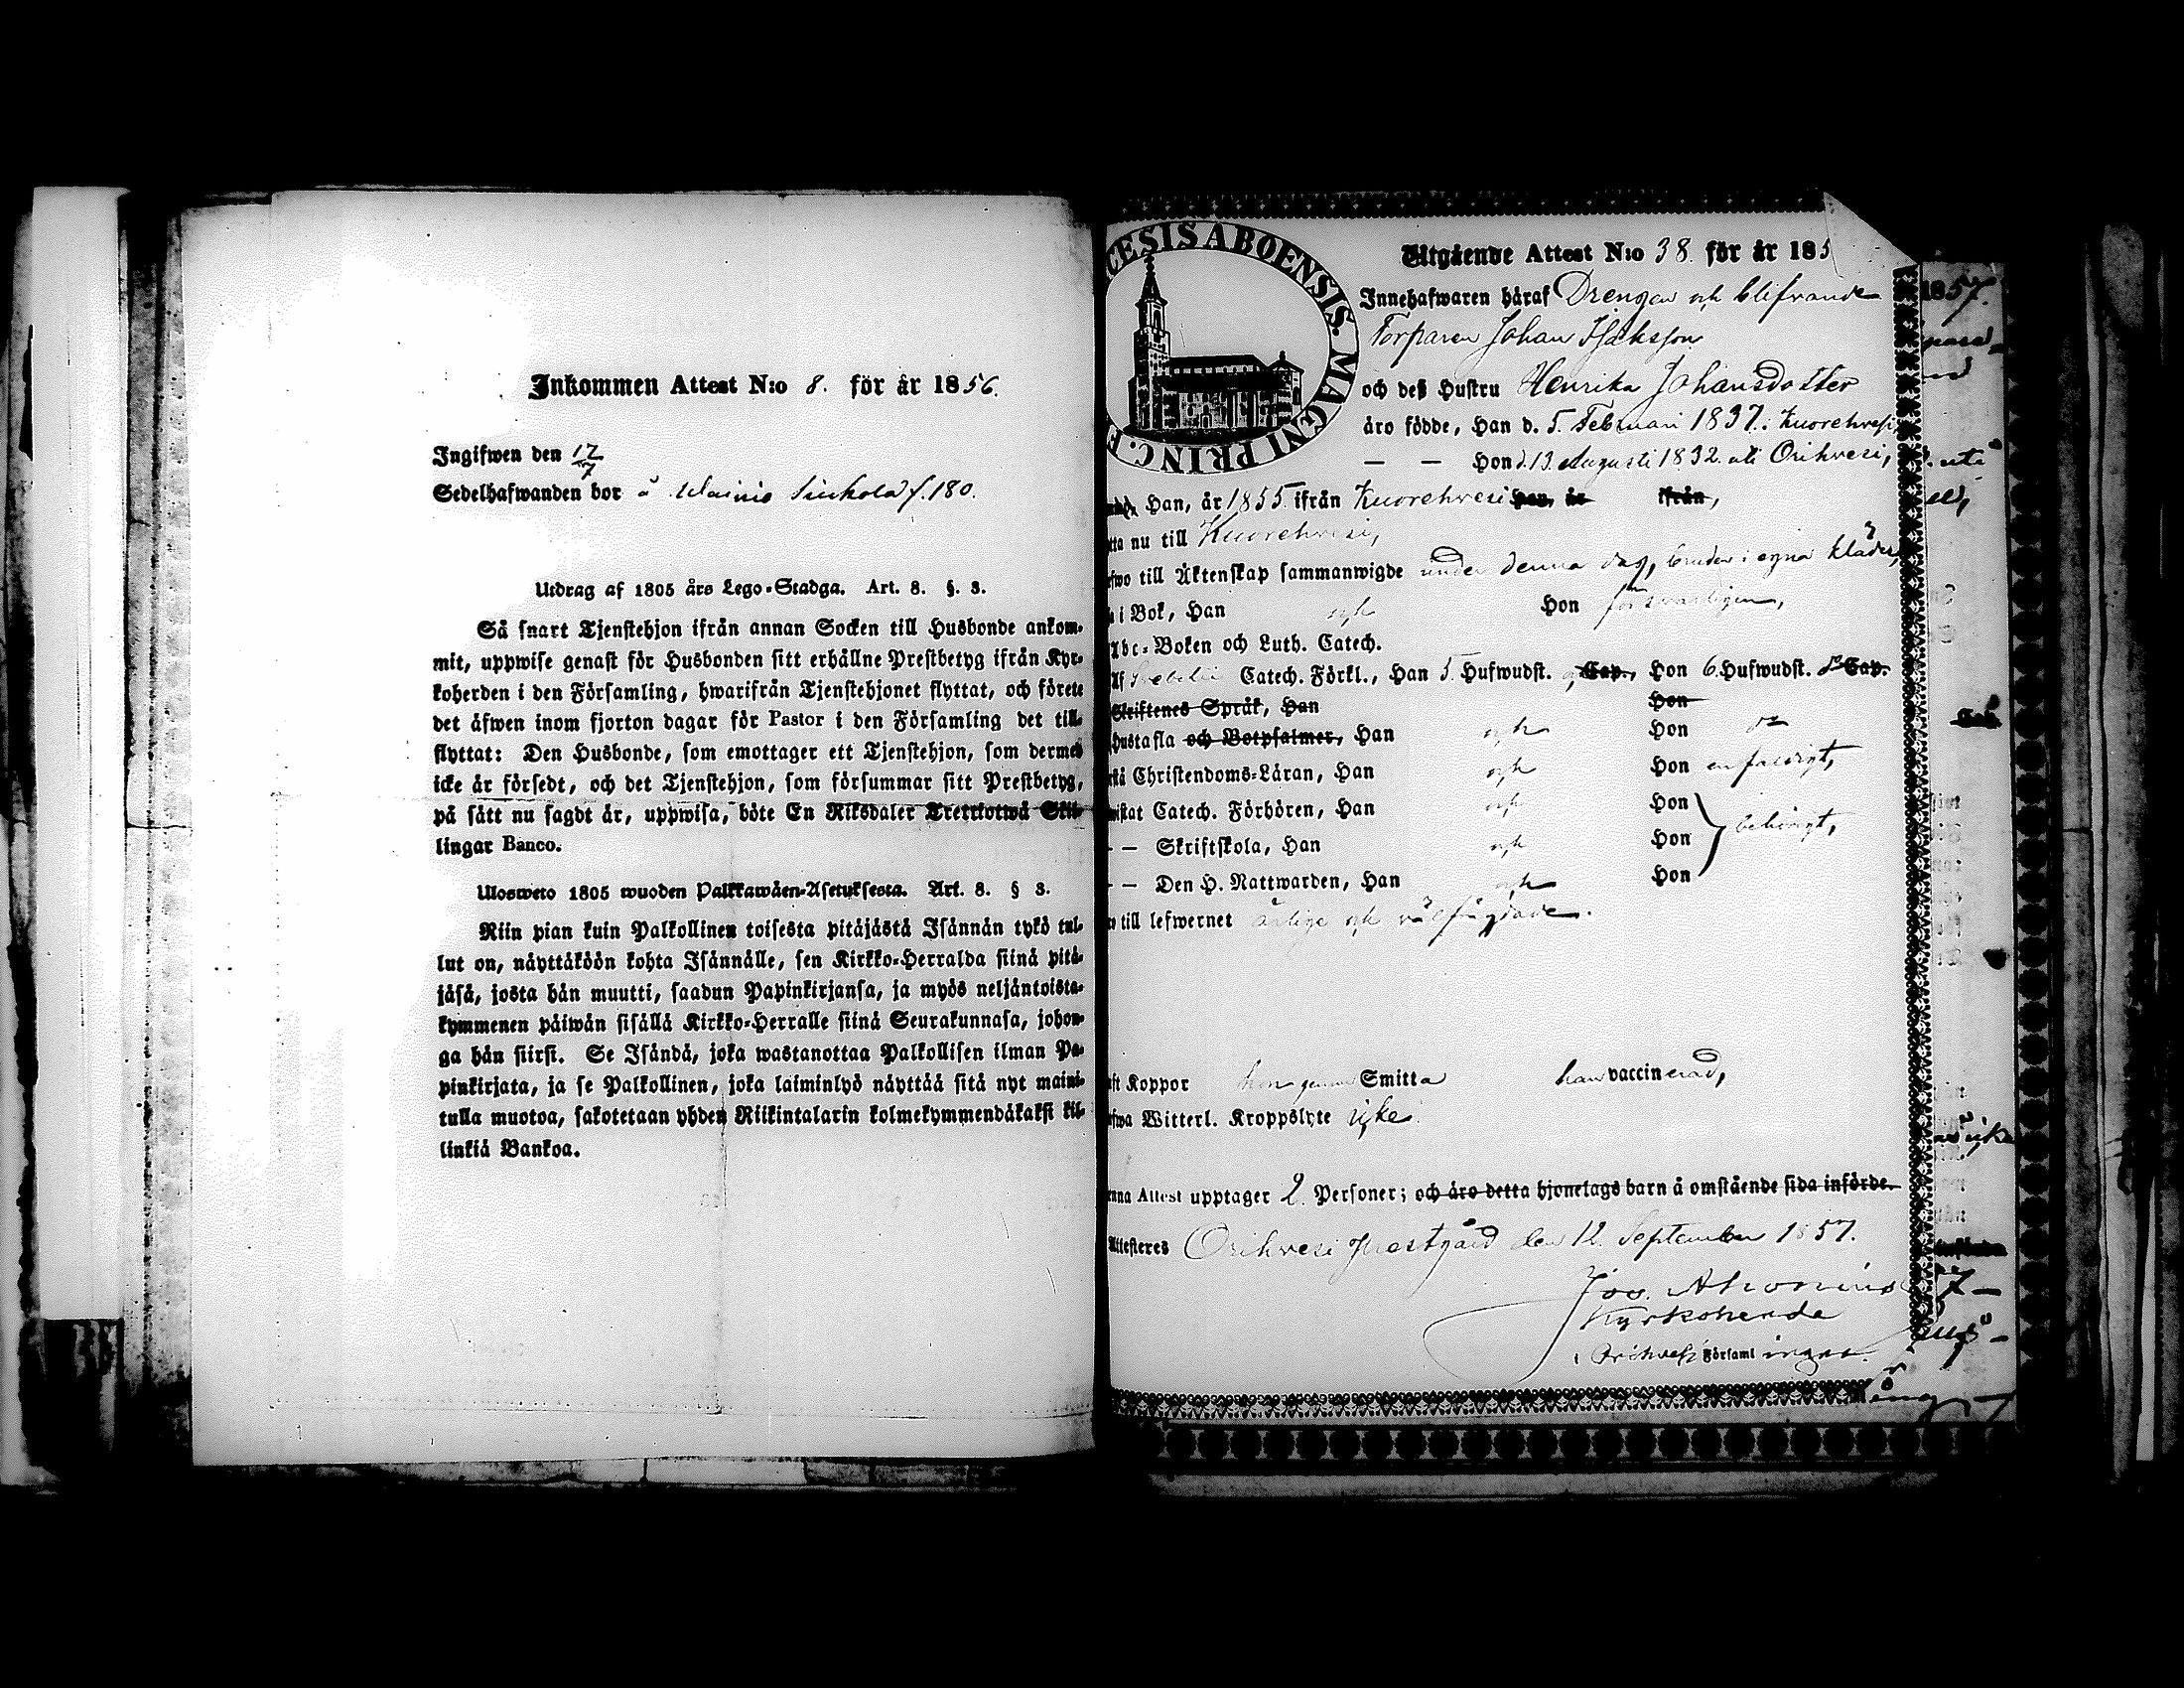 Inkommen Attest N:o 8. för år 1856.
Ingifwen den 17/7
Sedelhafwanden bor å f. 180.
Utdrag af 1805 års Lego-Stadga. Art. 8. §. 3.
Så snart Tjenstehjon ifrån annan Socken till Husbonde ankom-
mit, uppwise genast för Husbonden sitt erhållne Prestbetyg ifrån Kyr-
koherden i den Församling, hwarifrån Tjenstehjonet flyttat, och förete
det äfwen inom fjorton dagar för Pastor i den Församling det till-
flyttat: Den Husbonde, som emottager ett Tjenstehjon, som dermed
icke är försedt, och det Tjenstehjon, som försummar sitt Prestbetyg,
på sätt nu sagdt är, uppwisa, böte En Riksdaler Trettiotwå Skil-
lingar Banco.
Ulosweto 1805 wuoden Palkkawäen-Asetuksesta. Art. 8. § 3.
Niin pian kuin Palkollinen toisesta pitäjästä Isännän tykö tul-
lut on, näyttäköön kohta Isännälle, sen Kirkko-Herralda siinä pitä-
jäsä, josta hän muutti, saadun Papinkirjansa, ja myös neljäntoista-
kymmenen päiwän sisällä Kirkko-Herralle siinä Seurakunnasa, johon-
ga hän siirsi. Se Isändä, joka wastanottaa Palkollisen ilman Pa-
pinkirjata, ja se Palkollinen, joka laiminlyö näyttää sitä nyt maini-
tulla muotoa, sakotetaan yhden Riikintalarin kolmekymmendäkaksi kil-
linkiä Bankoa.
CESIS ABOENSIS. MAGNI PRINC. F
Utgående Attest N:o 38. för år 185
Innehafwaren häraf Drengen och blifvande
Torparen Johan Isaksson
och deß Hustru Henrika Johansdotter
äro födde, Han d. 5. Februari 1837. i Kuorehvesi,
— — Hon d. 13 Augusti 1832. uti Orihvesi,
Han, år 1855 ifrån Kuorehvesi Hon, år ifrån,
tta nu till Kuorehvesi,
fwo till Äktenskap sammanwigde under denna dag, bruden i egna kläder,
a i Bok, Han och Hon försvarligen,
Abc-Boken och Luth. Catech.
Af Svebelii Catech. Förkl., Han 5. Hufwudst. Cap., Hon 6. Hufwudst. Cap.
Skriftenes Språk, Han Hon
Hustafla och Botpsalmer, Han och Hon
stå Christendoms-Läran, Han och Hon enfaldigt,
wistat Catech. Förhören, Han och Hon
— — Skriftskola, Han och Hon behörigt,
— — Den H. Nattwarden, Han och Hon
till lefwernet ärlige och välfrägdade.
aft Koppor hon genom Smitta han vaccinerad,
afwa Witterl. Kroppslyte icke.
enna Attest upptager 2. Personer; och äro detta hjonelags barn å omstående sida införde.
Attesteres Orihvesi Prestgård den 12. September 1857.
Kyrkoherde
i Orihvesi Församlingen.
1857.